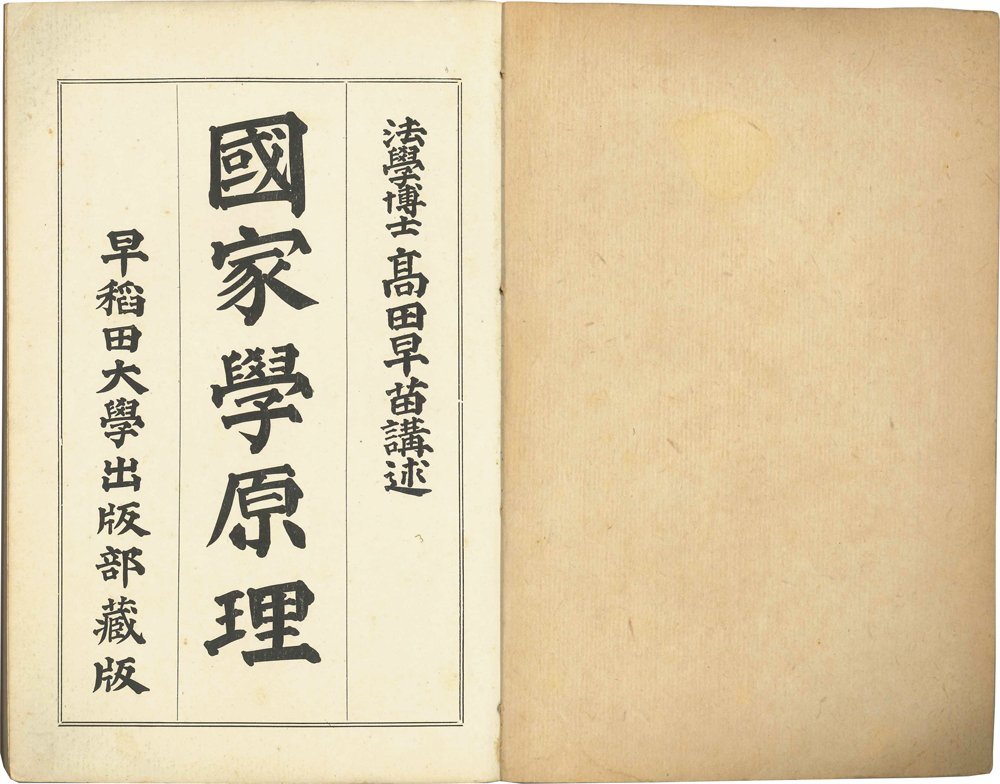 法學博士 髙田早苗講述
國家學原理
早稻田大學出版部藏版